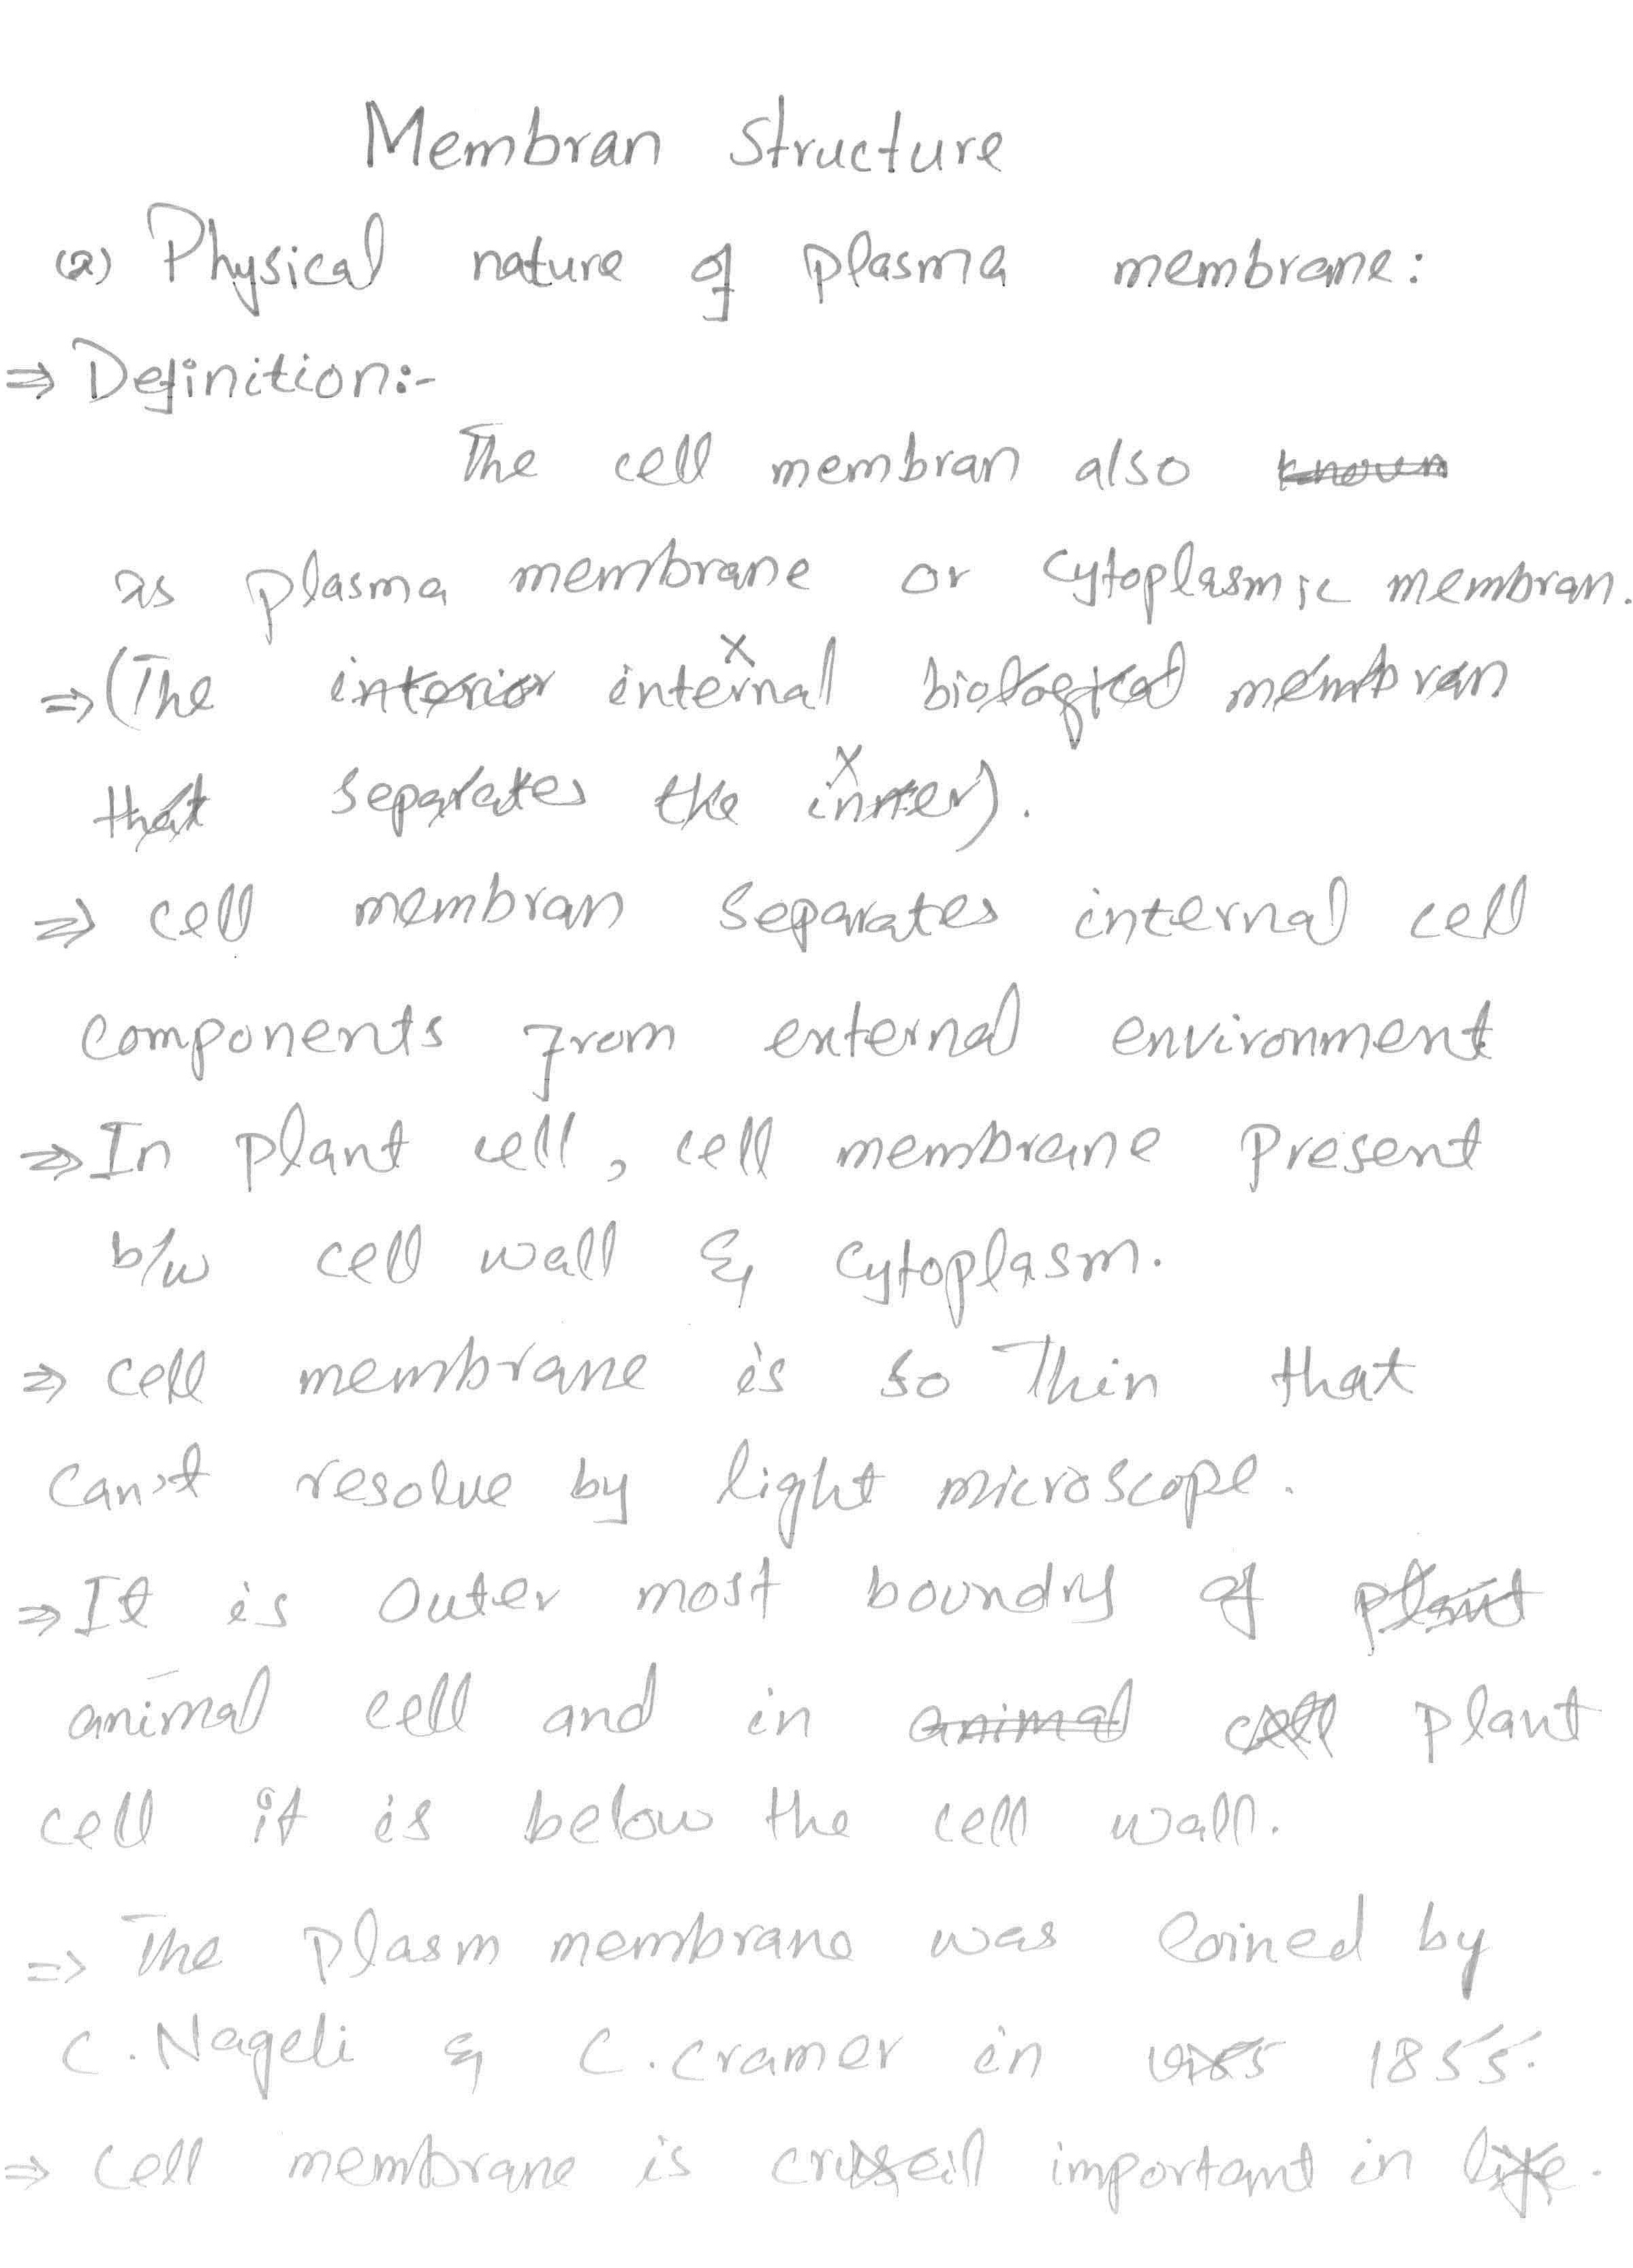 Membran Structure
(a) Physical nature of plasma membrane:
⇒ Definition:-
The cell membran also known
as plasma membrane or Cytoplasmic membran.
⇒ (The interior internal biological membran
that separates the inner).
⇒ cell membran Separates internal cell
components from external environment
⇒ In plant cell, cell membrane Present
b/w cell wall & Cytoplasm.
⇒ cell membrane is so Thin that
Can't resolve by light microscope.
⇒ It is Outer most boundry of plant
animal cell and in animal cell plant
cell it is below the cell wall.
⇒ The Plasm membrane was Coined by
C. Nageli & C. Cramer in 1855.
⇒ Cell membrane is cruseil important in life.